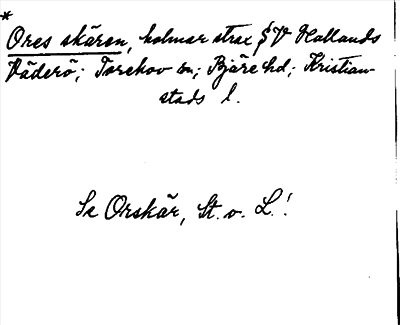 *
Ores skären, holmar strax SV Hallands
Väderö; Torekov sn; Bjäre hd; Kristian-
stads l.
Se Orskär, St. o. L.!